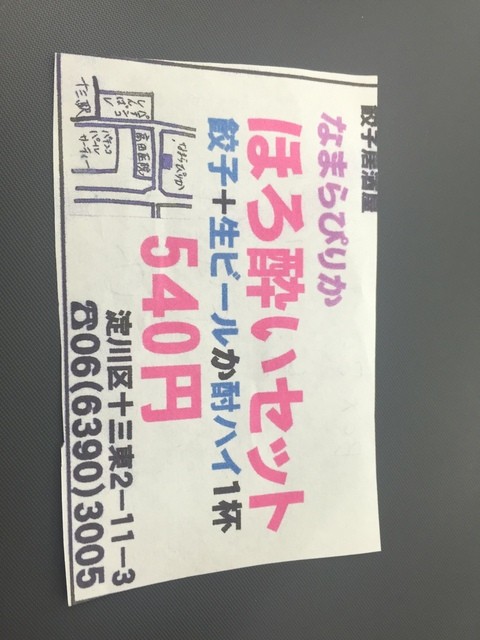 餃子居酒屋
なまらぴりか
ほろ酔いセット
餃子+生ビールか酎ハイ1杯
540円
淀川区十三東2-11-3
☎06(6390)3005
十三駅
なまらぴりか